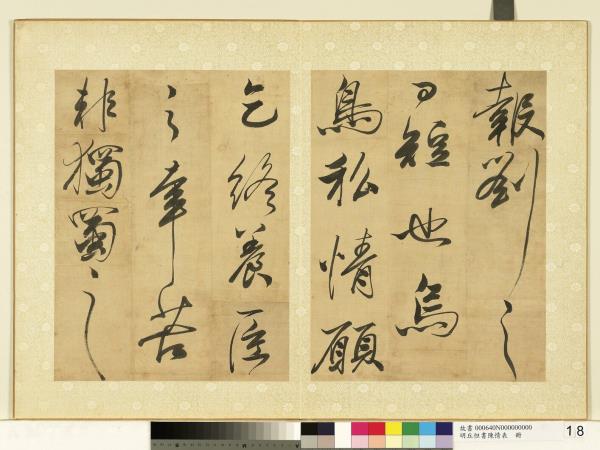 報劉之
日短也烏
鳥私情願
乞終養臣
之辛苦
非獨蜀之
故書 000640N000000000
明丘恒書陳情表 冊
18